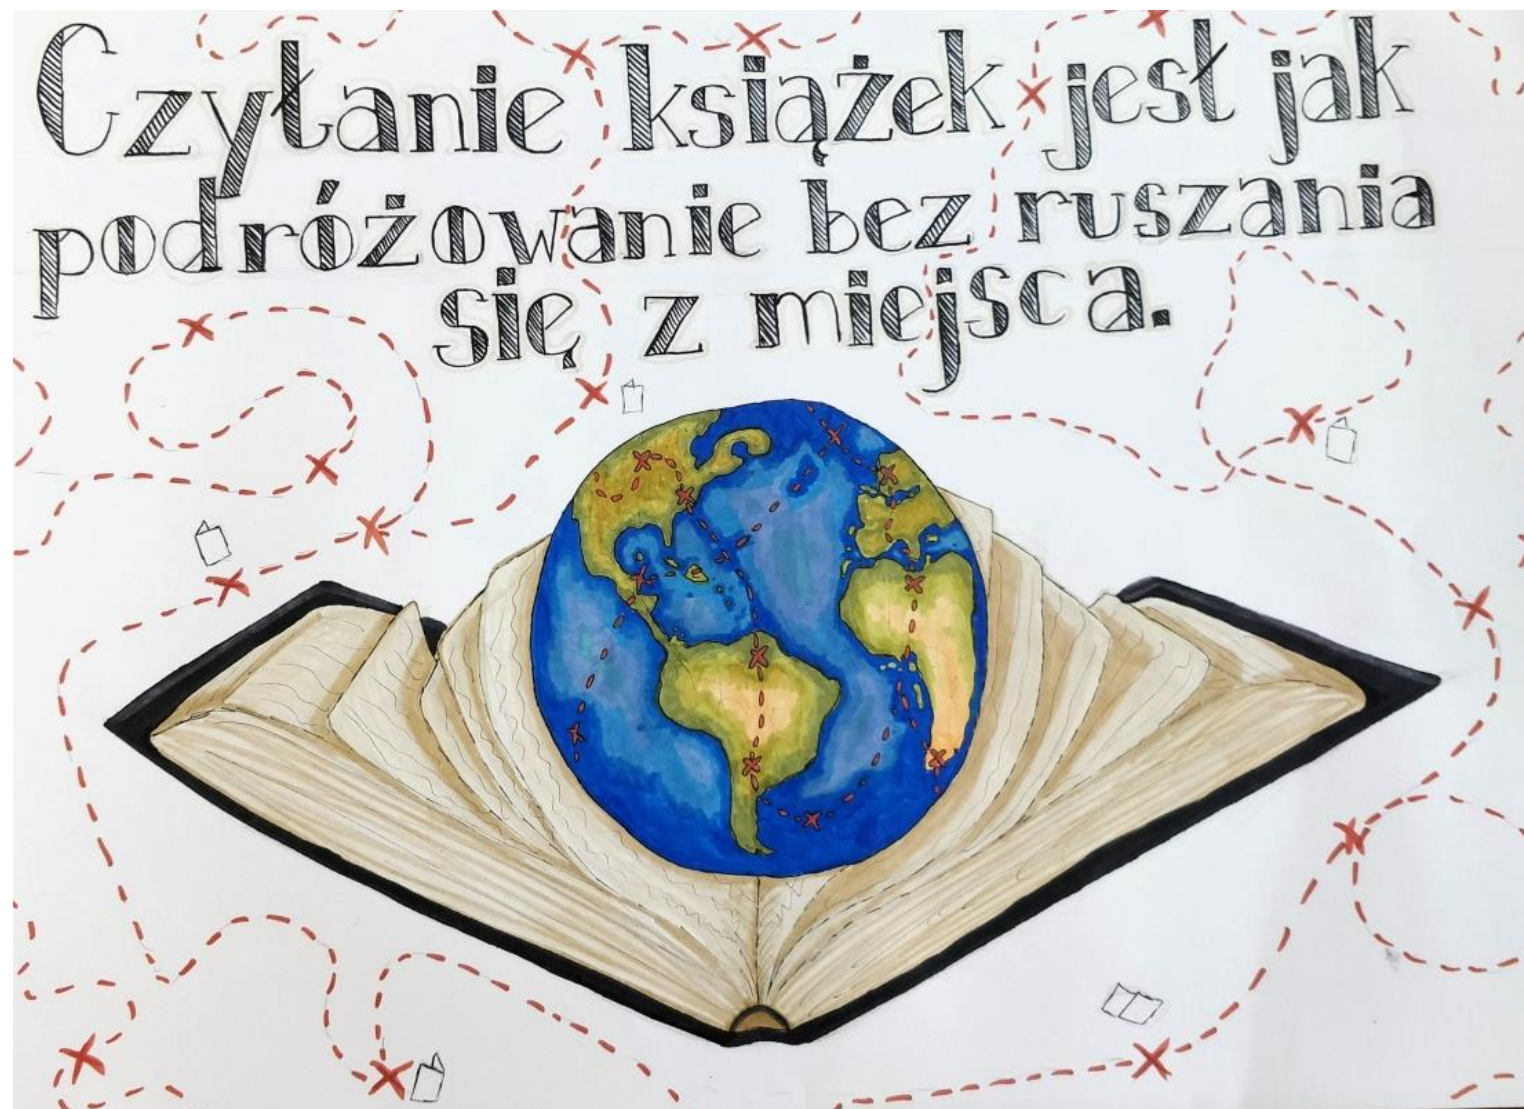 Czytanie książek jest jak
podróżowanie bez ruszania
się z miejsca.